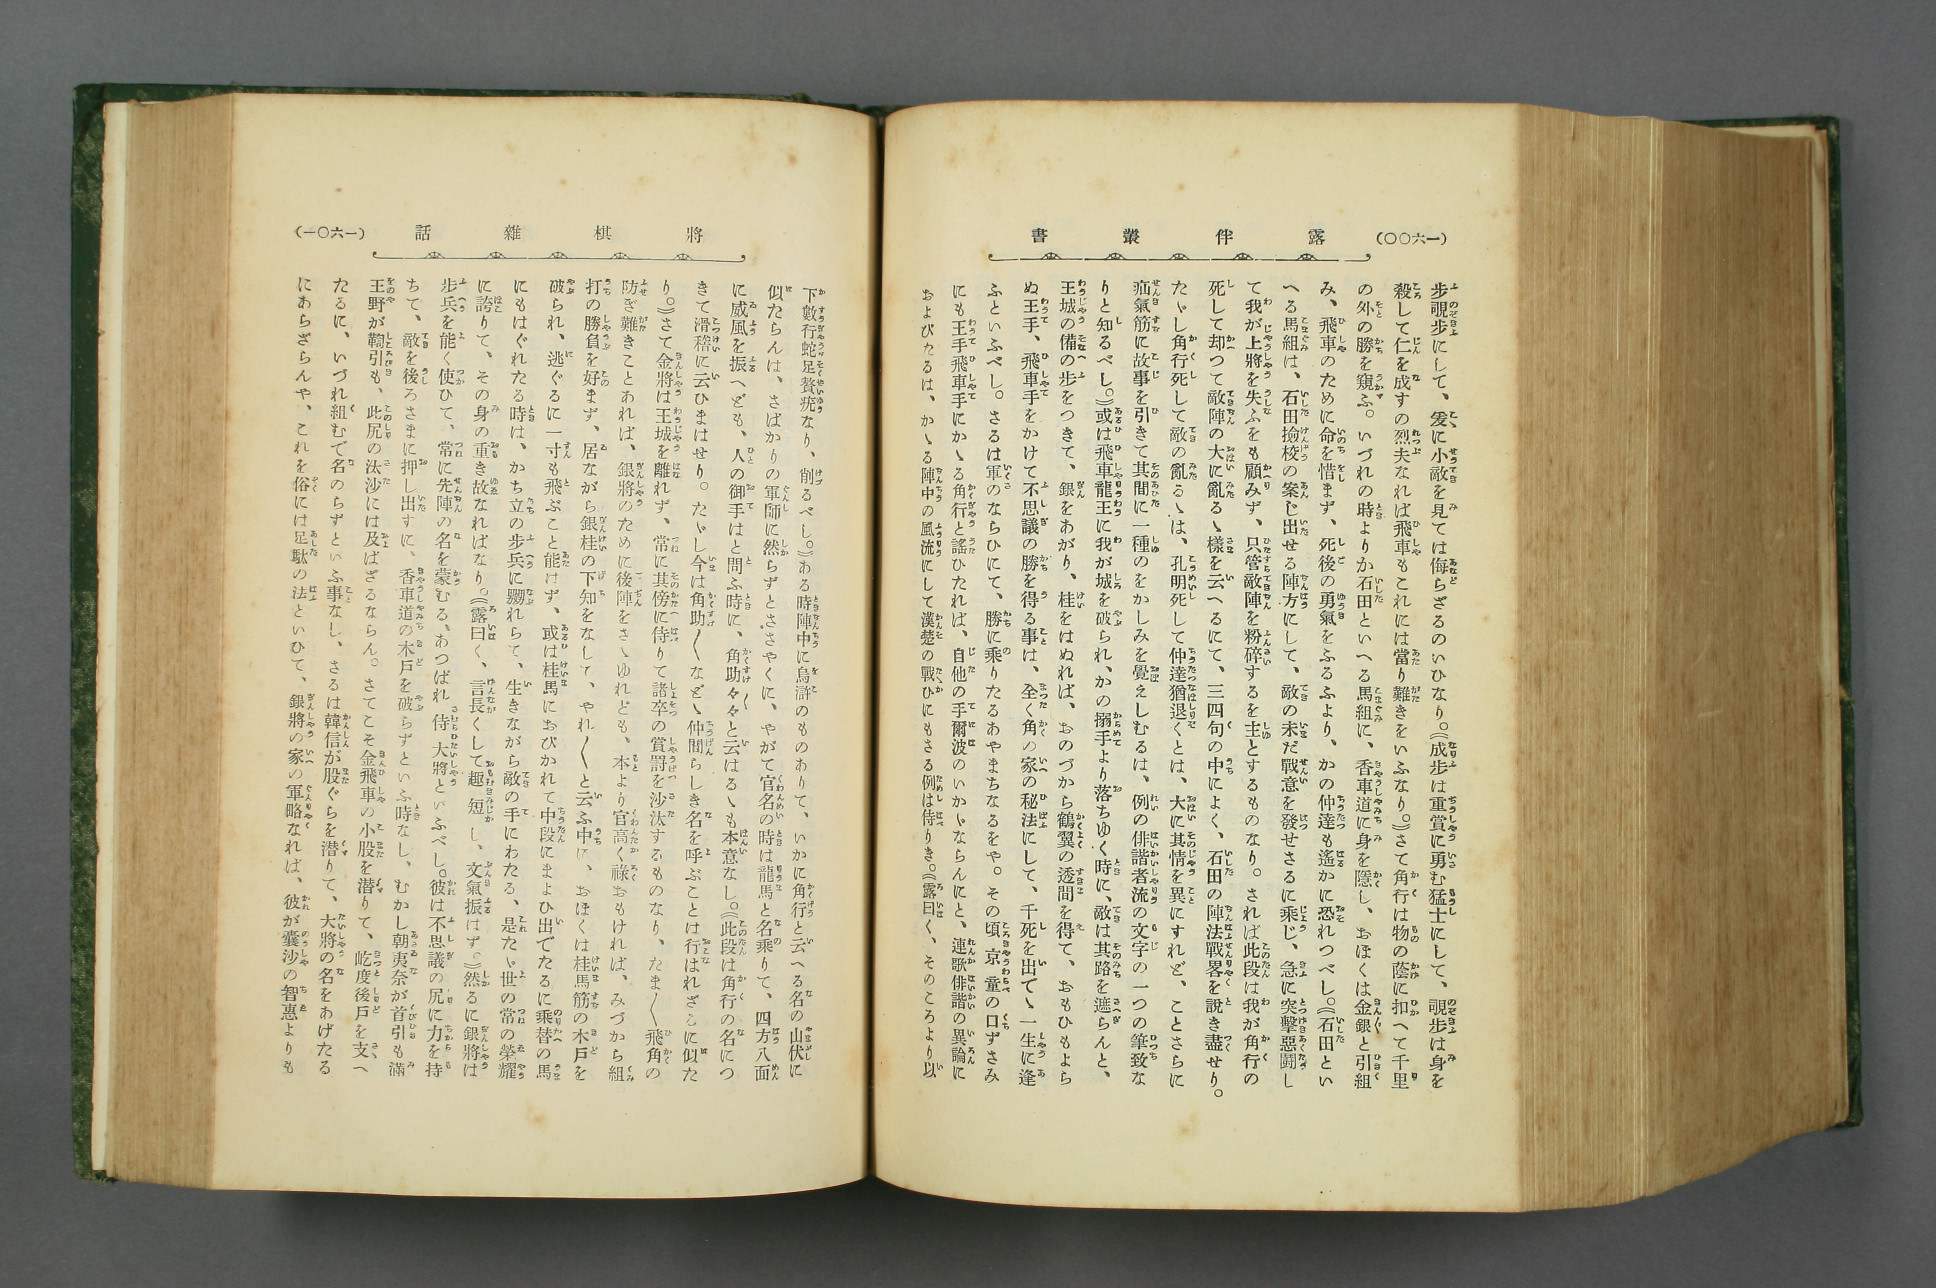 (一六〇〇)
露伴叢書
步覗步にして、爰に小敵を見ては侮らざるのいひなり。《成步は重賞に勇む猛士にして、覗步は身を
殺して仁を成すの烈夫なれば飛車もこれには當り難きをいふなり。》さて角行は物の蔭に扣へて千里
の外の勝を窺ふ。いづれの時よりか石田といへる馬組に、香車道に身を隱し、おほくは金銀と引組
み、飛車のために命を惜まず、死後の勇氣をふるふより、かの仲達も遙かに恐れつべし。《石田とい
へる馬組は、石田撿校の案じ出せる陣方にして、敵の未だ戰意を發せさるに乘じ、急に突擊惡鬪し
て我が上將を失ふをも顧みず、只管敵陣を粉碎するを主とするものなり。されば此段は我が角行の
死して却つて敵陣の大に亂るゝ樣を云へるにて、三四句の中によく、石田の陣法戰畧を說き盡せり。
たゞし角行死して敵の亂るゝは、孔明死して仲達猶退くとは、大に其情を異にすれど、ことさらに
疝氣筋に故事を引きて其間に一種のをかしみを覺えしむるは、例の俳諧者流の文字の一つの筆致な
りと知るべし。》或は飛車龍王に我が城を破られ、かの搦手より落ちゆく時に、敵は其路を遮らんと、
王城の備の步をつきて、銀をあがり、桂をはぬれば、おのづから鶴翼の透間を得て、おもひもよら
ぬ王手、飛車手をかけて不思議の勝を得る事は、全く角の家の秘法にして、千死を出でゝ一生に逢
ふといふべし。さるは軍のならひにて、勝に乘りたるあやまちなるをや。その頃京童の口ずさみ
にも王手飛車手にかゝる角行と謠ひたれば、自他の手爾波のいかゞならんにと、連歌俳諧の異論に
およびたるは、かゝる陣中の風流にして漢楚の戰ひにもさる例は侍りき。《露曰く、そのころより以
將棋雜話
(一六〇一)
下數行蛇足贅疣なり、削るべし。》ある時陣中に烏滸のものありて、いかに角行と云へる名の山伏に
似たらんは、さばかりの軍師に然らずとささやくに、やがて官名の時は龍馬と名乘りて、四方八面
に威風を振へども、人の御手はと問ふ時に、角助々々と云はるゝも本意なし。《此段は角行の名につ
きて滑稽に云ひまはせり。たゞし今は角助〳〵などゝ仲間らしき名を呼ぶことは行はれざるに似た
り。》さて金將は王城を離れず、常に其傍に侍りて諸卒の賞罸を沙汰するものなり、たま〳〵飛角の
防ぎ難きことあれば、銀將のために後陣をさゝゆれども、本より官高く祿おもければ、みづから組
打の勝負を好まず、居ながら銀桂の下知をなして、やれ〳〵と云ふ中に、おほくは桂馬筋の木戶を
破られ、逃ぐるに一寸も飛ぶこと能はず、或は桂馬におびかれて中段にまよひ出でたるに乘替の馬
にもはぐれたる時は、かち立の步兵に嬲れらて、生きながら敵の手にわたる、是たゞ世の常の榮耀
に誇りて、その身の重き故なればなり。《露曰く、言長くして趣短し、文氣振はず。》然るに銀將は
步兵を能く使ひて、常に先陣の名を蒙むる、あつばれ侍大將といふべし。彼は不思議の尻に力を持
ちて、敵を後ろさまに押し出すに、香車道の木戶を破らずといふ時なし、むかし朝夷奈が首引も滿
王野が鞠引も、此尻の汰沙には及ばざるならん。さてこそ金飛車の小股を潛りて、屹度後戶を支へ
たるに、いづれ組むで名のらずといふ事なし、さるは韓信が股ぐらを潛りて、大將の名をあげたる
にあらざらんや、これを俗には足駄の法といひて、銀將の家の軍略なれば、彼が囊沙の智惠よりも